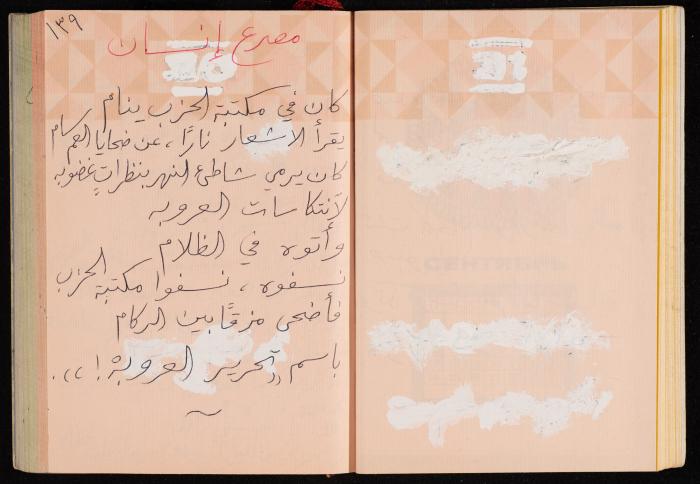 ١٣٩
مصرع إنسان
كان في مكتبة الحزب ينام
يقرأ الاشعار نارًا، عن ضحايا
كان يرمي شاطئ النهر بنظراتٍ غضوبه
لأنتكاسات العروبه
وأتوه في الظلام
نسفوه، نسفوا مكتبة الحزب
فأضحى مزقًا بين الركام
باسم ((تحرير العروبة!)).